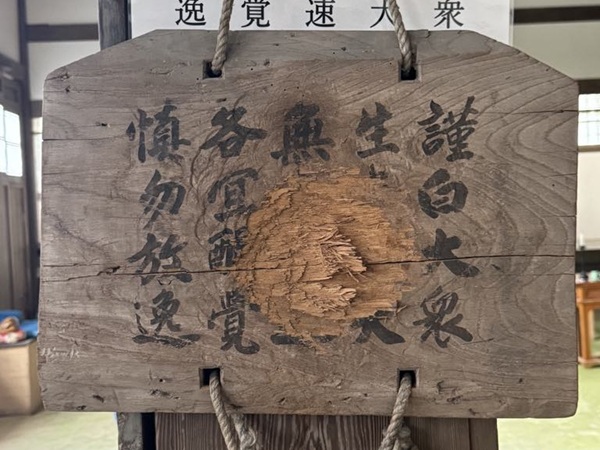 衆
大
速
覚
逸
謹白大衆
生大
無
各冝醒覚
慎勿放逸